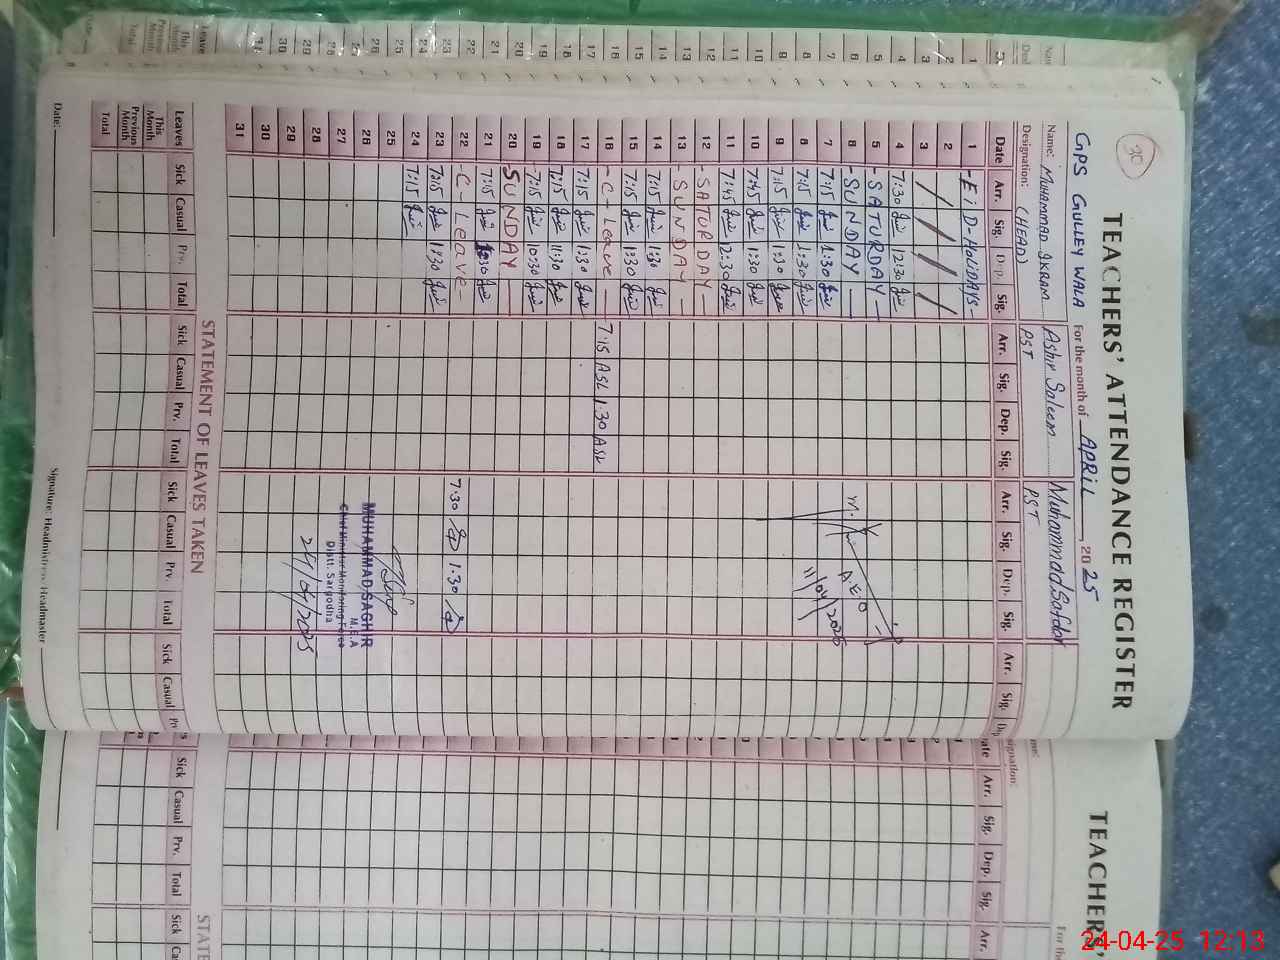 30
TEACHERS' ATTENDANCE REGISTER
GPS GULLEY WALA For the month of APRIL 2025
Name: MUHAMMAD IKRAM Ashir Saleem Muhammad Safdar
Designation: (HEAD) PST PST
Date Arr. Sig. Dep. Sig. Arr. Sig. Dep. Sig. Arr. Sig. Dep. Sig. Arr. Sig.
1 - EiD-HoliDAYS -
2
3
4 7:30 12:30
5 - SATURDAY -
6 - SUNDAY -
7 7:15 1:30
8 7:15 1:30
9 7:15 1:30
10 7:45 1:30
11 7:45 12:30
12 - SATURDAY -
13 - SUNDAY -
14 7:15 1:30
15 7:15 1:30
16 - C - Leave - 7:15 ASL 1:30 ASL
17 7:15 1:30
18 7:15 11:30
19 7:15 10:30
20 - SUNDAY -
21 7:15
22 - C - Leave - 7.30 1.30
23 7:15 1:30
24 7:15
25
26
27
28
29
30
31
A.E.O
11/04/2025
MUHAMMAD SAGHIR
M.E.A
Chief Minister Monitoring Force
Distt. Sargodha
24/04/2025
STATEMENT OF LEAVES TAKEN
Leaves Sick Casual Prv. Total Sick Casual Prv. Total Sick Casual Prv. Total Sick Casual
This Month
Previous Month
Total
Date: Signature: Headmistress Headmaster
TEACHERS'
Arr. Sig. Dep. Sig. Arr.
Sick Casual Prv. Total Sick
24-04-25 12:13